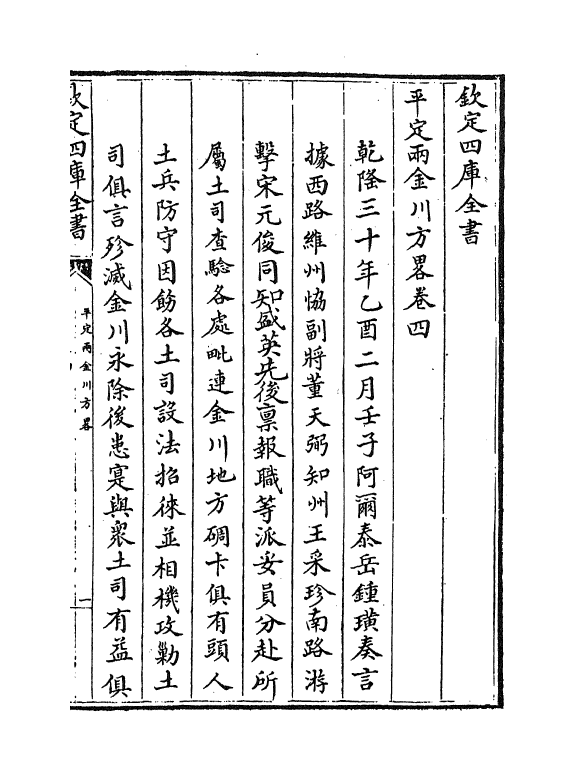 欽定四庫全書
平定兩金川方畧卷四
乾隆三十年乙酉二月壬子阿爾泰岳鍾璜奏言
據西路維州協副將董天弼知州王采珍南路游
擊宋元俊同知盛英先後禀報職等派妥員分赴所
屬土司查驗各處毗連金川地方碉卡俱有頭人
土兵防守因飭各土司設法招徠並相機攻勦土
司俱言殄滅金川永除後患寔與衆土司有益俱
欽定四庫全書
平定兩金川方畧
一